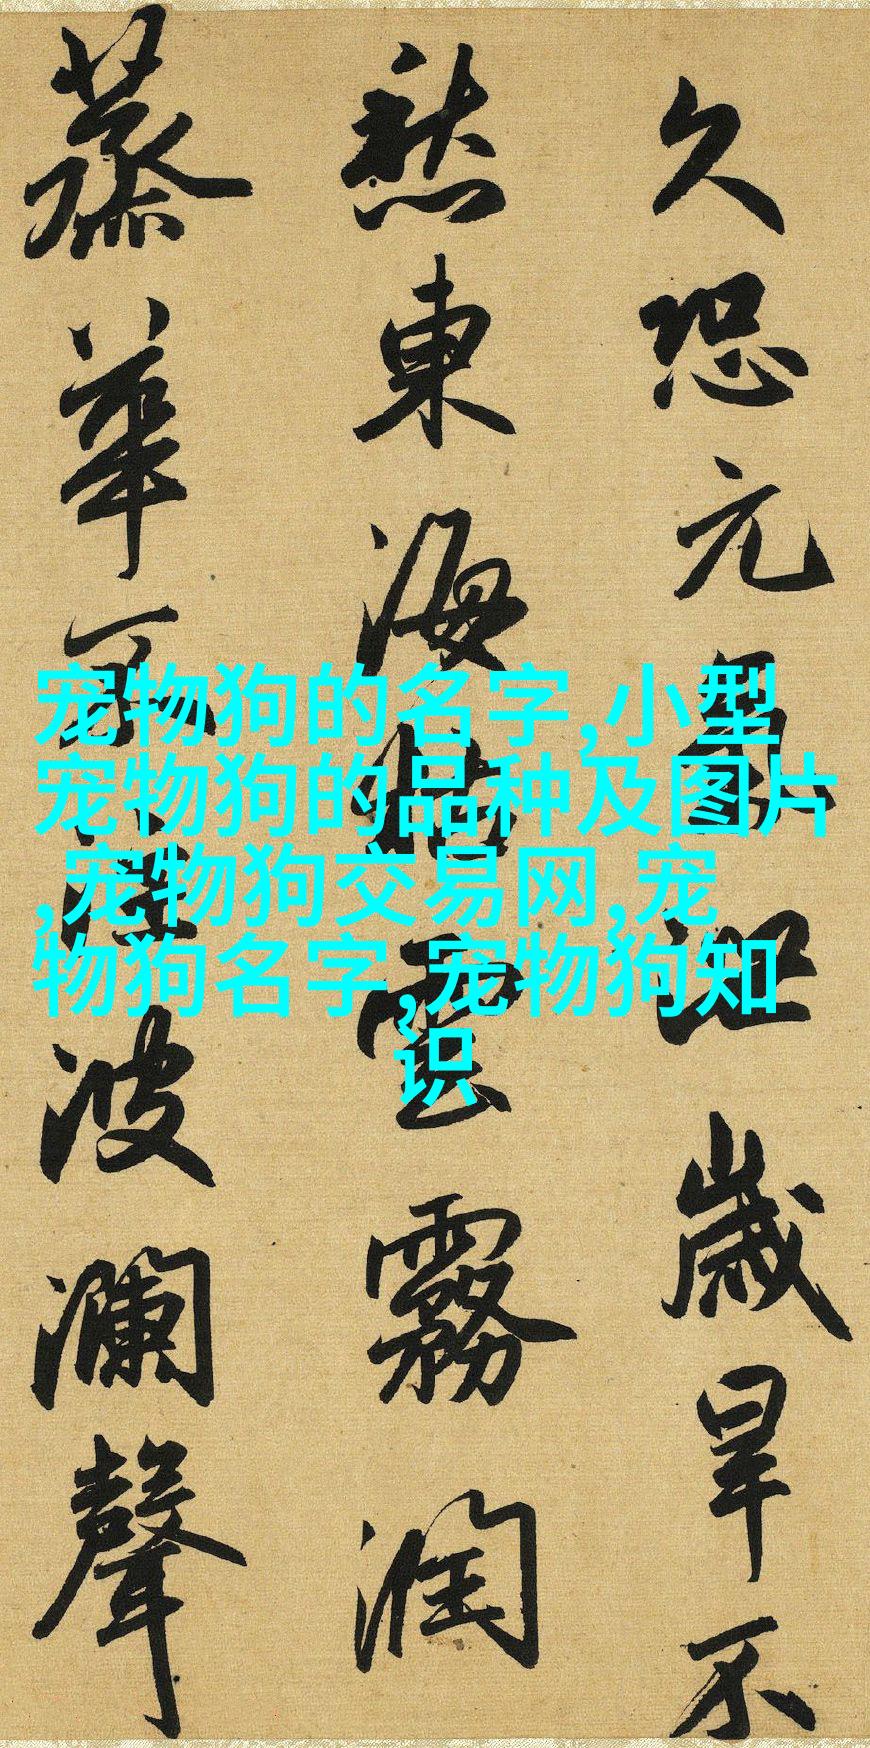 久恐元氣泄歲旱不
愁東海枯雲霧潤
蒸華不注波瀾聲
宠物狗的名字,小型
宠物狗的品种及图片
,宠物狗交易网,宠
物狗名字,宠物狗知
识